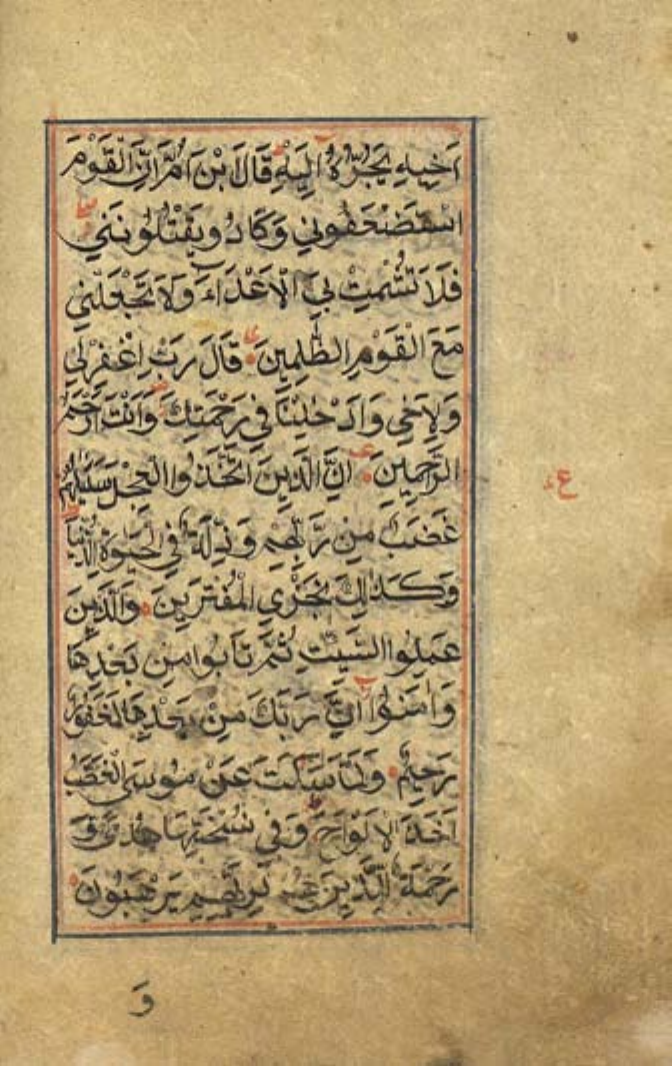 اَخِيهِ يَجُرُّهُ اِلَيْهِ قَالَ ابْنَ اُمَّ اِنَّ الْقَوْمَ
اسْتَضْعَفُونِي وَكَادُوا يَقْتُلُونَنِي
فَلَا تُشْمِتْ بِيَ الْاَعْدَاءَ وَلَا تَجْعَلْنِي
مَعَ الْقَوْمِ الظّٰلِمِينَ قَالَ رَبِّ اغْفِرْ لِي
وَلِاَخِي وَاَدْخِلْنَا فِي رَحْمَتِكَ وَاَنْتَ اَرْحَمُ
الرّٰحِمِينَ اِنَّ الَّذِينَ اتَّخَذُوا الْعِجْلَ سَيَنَالُهُمْ
غَضَبٌ مِنْ رَبِّهِمْ وَذِلَّةٌ فِي الْحَيٰوةِ الدُّنْيَا
وَكَذٰلِكَ نَجْزِي الْمُفْتَرِينَ وَالَّذِينَ
عَمِلُوا السَّيِّـٔتِ ثُمَّ تَابُوا مِنْ بَعْدِهَا
وَاٰمَنُوا اِنَّ رَبَّكَ مِنْ بَعْدِهَا لَغَفُورٌ
رَحِيمٌ وَلَمَّا سَكَتَ عَنْ مُوسَى الْغَضَبُ
اَخَذَ الْاَلْوَاحَ وَفِي نُسْخَتِهَا هُدًى وَ
رَحْمَةٌ لِلَّذِينَ هُمْ لِرَبِّهِمْ يَرْهَبُونَ
ع
وَ